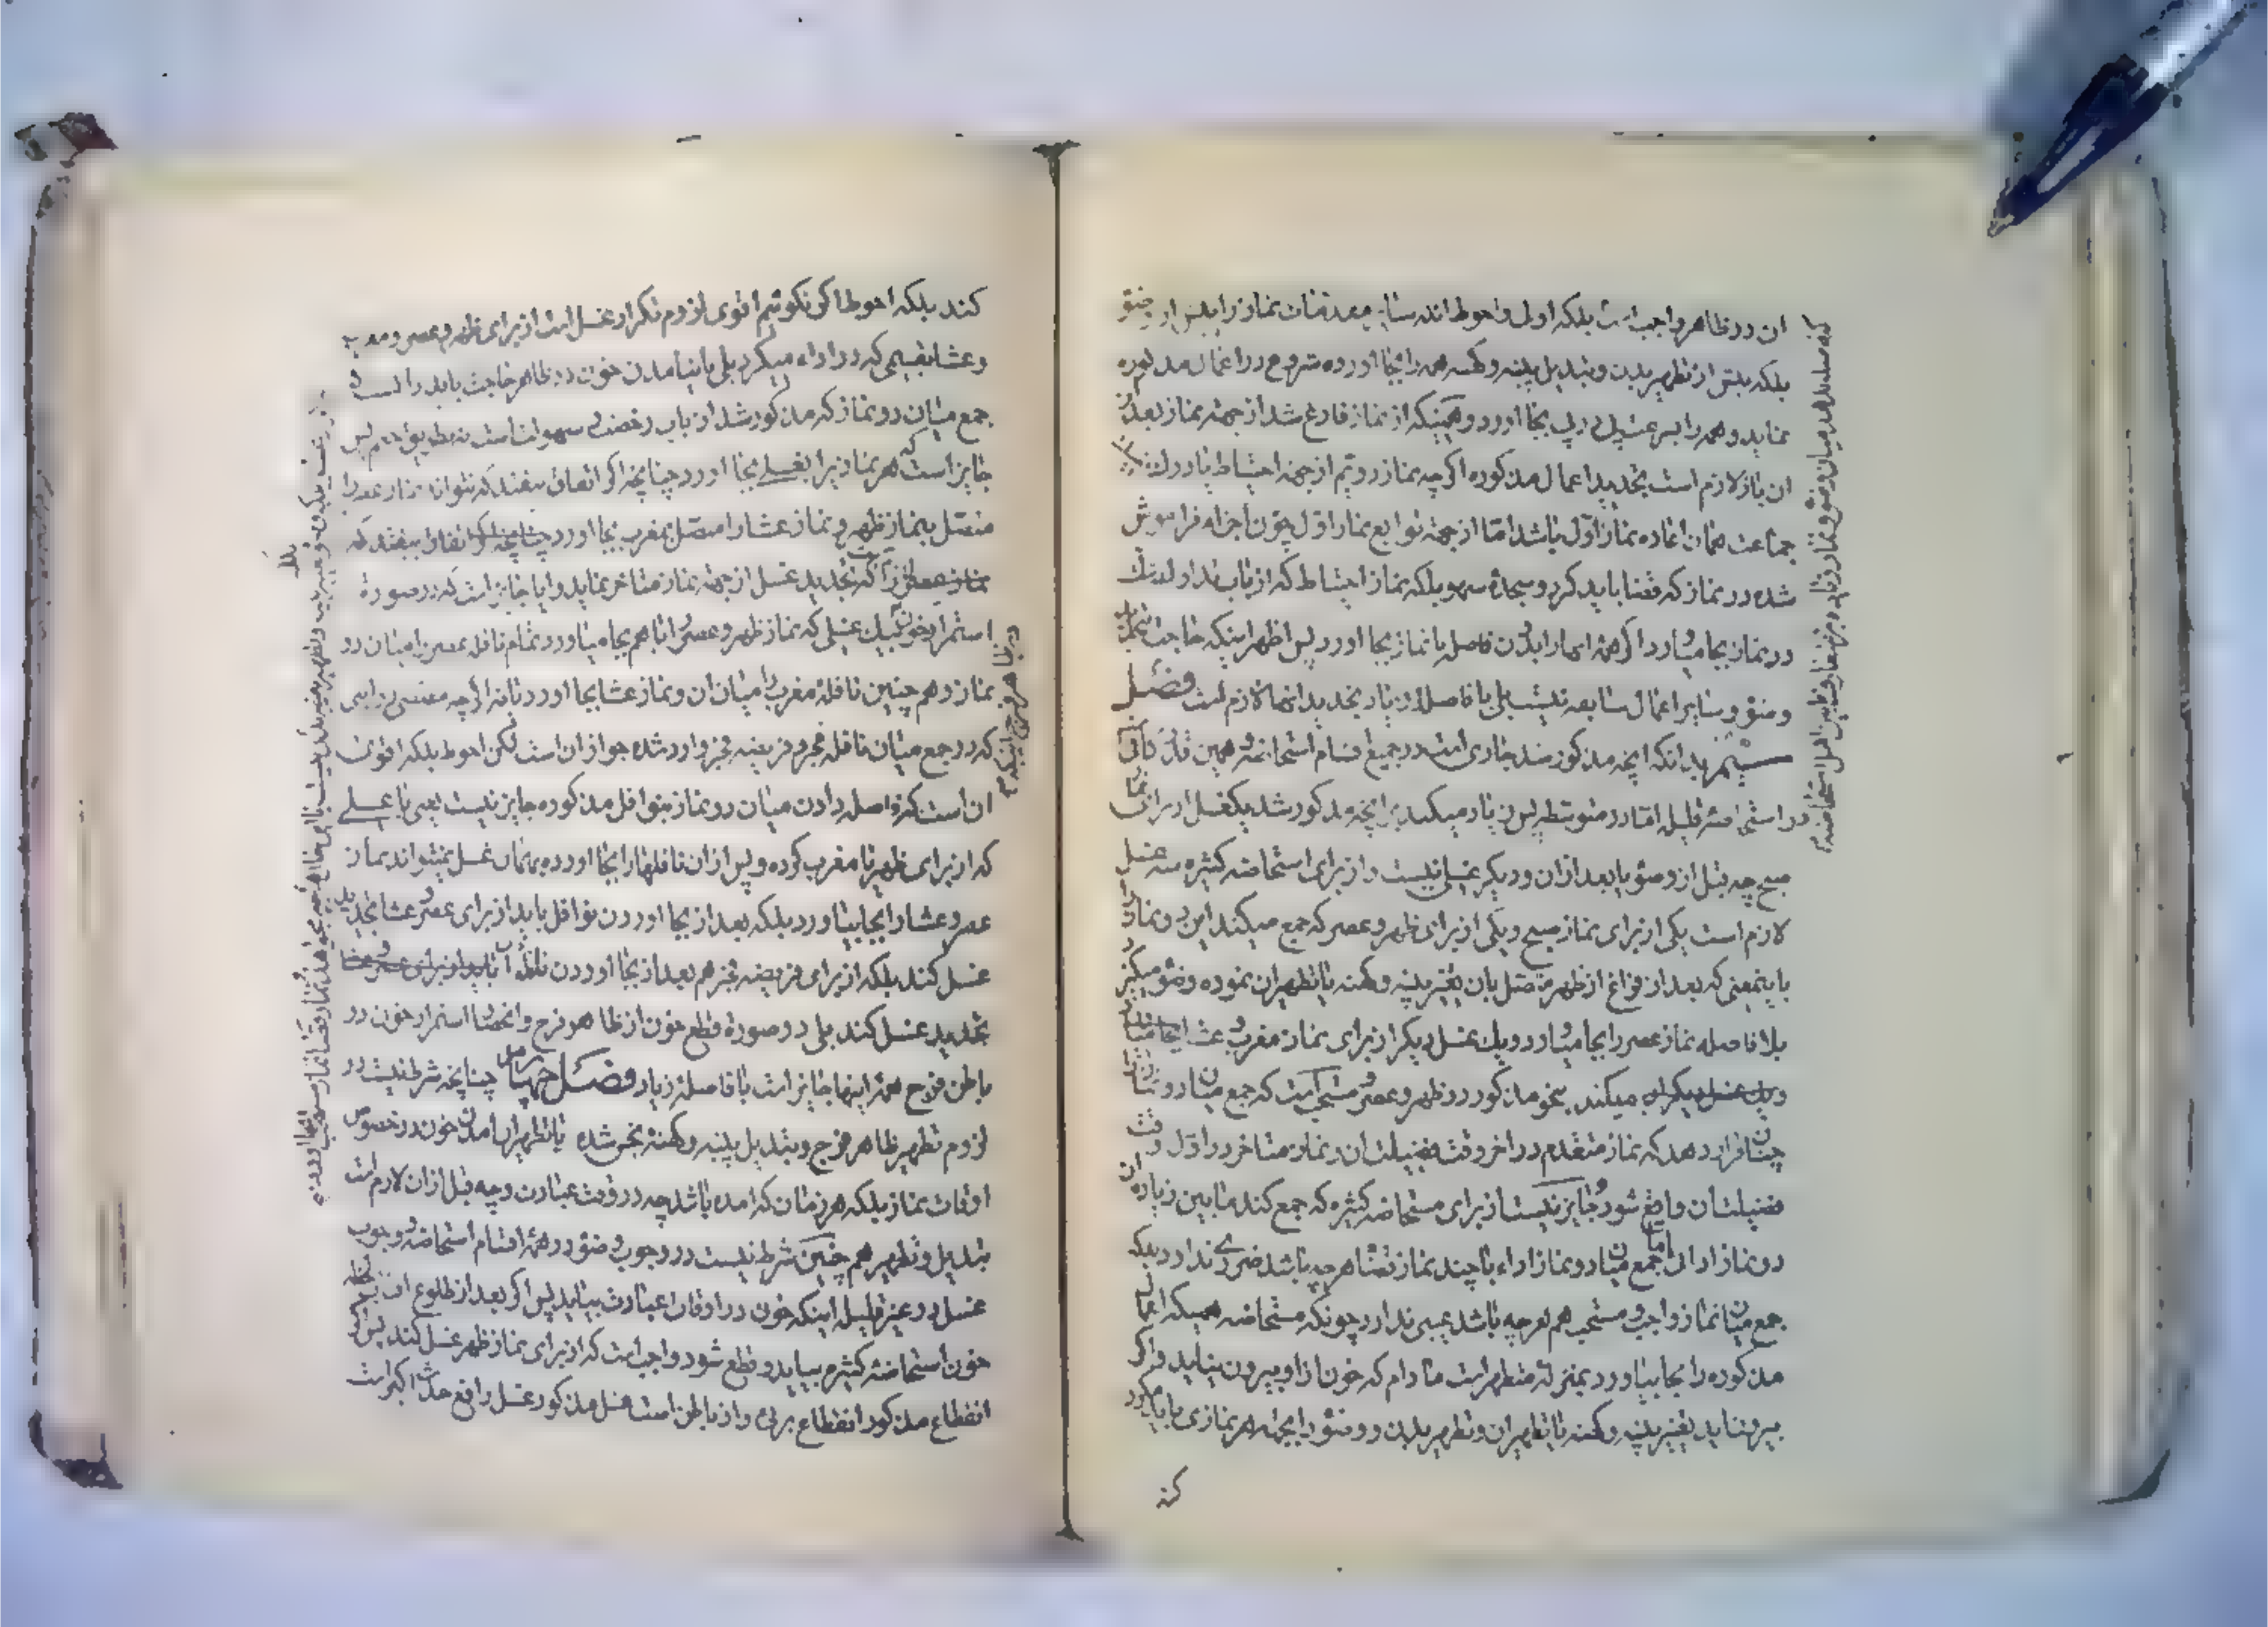 ان در ظاهر واجبست بلکه اولی و احوط نماز را پس از وضو
بلکه پیش از تطهیر بدن و تبدیل پنبه و کهنه همه را بجا اورده شروع در اعمال مذکوره
نماید و همه را پی در پی بجا اورد و همینکه از نماز فارغ شد از جهة نماز بعد
ان باز لازم است تجدید اعمال مذکوره اگر چه نماز دویم از جهة احتیاط یا درک
جماعت همان اعاده نماز اول باشد اما از جهة توابع نماز اول چون اجزاء فراموش
شده در نماز که قضا باید کرد و سجدهٔ سهو بلکه نماز احتیاط که از باب تدارک شک
در نماز بجا میاورد اگر همه اینها را بدون فاصله با نماز بجا اورد پس اظهر اینکه حاجت بتجدید
وضو و سایر اعمال سابقه نیست بلی با فاصله زیاد تجدید انها لازم است فصل
سیم بدانکه انچه مذکور شد جاری است در جمیع اقسام استحاضه و همین قدر کافی
در استحاضه قلیله اما در متوسطه پس زیاد میکند بر انچه مذکور شد یکغسل از برای نماز
صبح چه قبل از وضو یا بعد از ان و دیگر غسلی نیست و از برای استحاضه کثیره سه غسل
لازم است یکی از برای نماز صبح و یکی از برای ظهر و عصر که جمع میکند این دو نماز را
باینمعنی که بعد از فراغ از ظهر متصل بان تغییر پنبه و کهنه یا تطهیر ان نموده وضو میگیرد
بلا فاصله نماز عصر را بجا میاورد و یک غسل دیگر از برای نماز مغرب و عشا
میکند بنحو مذکور در ظهر و عصر و مستحب است که جمع میان دو نماز
چنان قرار دهد که نماز متقدم در اخر وقت فضیلت ان و نماز متاخر در اول وقت
فضیلت ان واقع شود و جایز نیست از برای مستحاضه کثیره که جمع کند مابین زیاده از
دو نماز ادا اما جمع میان دو نماز اداء با چند نماز قضا هر چه باشد ضرری ندارد بلکه
جمع میان نماز واجب و مستحب هم هر چه باشد عیبی ندارد چونکه مستحاضه همینکه اعمال
مذکوره را بجا بیاورد بمنزله متطهر است مادام که خون از او بیرون نیاید و اگر
بیرون اید تغییر پنبه و کهنه یا تطهیر ان و تطهیر بدن و وضو را بجهة هر نمازی باید مکرر
کند
کند بلکه احوط اگر نگوئیم اقوی لزوم تکرار غسل است از برای ظهر و عصر و مغرب
و عشا بقسمی که در اداء میکرد بلی با نیامدن خون در ظاهر حاجت باید دانست
جمع میان دو نماز که مذکور شد از باب رخصت و سهولت است نه بطریق حتم پس
جایز است که هر نمازیرا بغسلی بجا اورد چنانچه اگر اتفاق بیفتد که نتواند نماز عصر را
متصل بنماز ظهر و نماز عشا را متصل بمغرب بجا اورد چنانچه اگر اتفاق بیفتد که
تجدید غسل از جهة نماز متاخر نماید و ایا جایز است که در صورة
استمرار خون بیک غسلی که نماز ظهر و عصر را با هم بجا میاورد تمام نافله عصر را میان دو
نماز و هم چنین نافلهٔ مغرب را میان ان و نماز عشا بجا اورد یا نه اگر چه مقتضی
که در جمع میان نافله فجر و فریضه فجر وارد شده جواز ان است لکن احوط بلکه اقوی
ان است که فاصله دادن میان دو نماز بنوافل مذکوره جایز نیست یعنی با غسلی
که از برای ظهر یا مغرب کرده و پس از ان نافلها را بجا اورده بهمان غسل نمیتواند نماز
عصر و عشا را بجا بیاورد بلکه بعد از بجا اوردن نوافل باید از برای عصر و عشا تجدید
غسل کند بلکه از برای فریضه فجر هم بعد از بجا اوردن نافلهٔ ان باید از برای
تجدید غسل کند بلی در صورة قطع خون از ظاهر فرج و انحصار استمرار خون در
باطن فرج همه اینها جایز است با فاصلهٔ زیاد فصل چهارم چنانچه شرط نیست در
لزوم تطهیر ظاهر فرج و تبدیل پنبه و کهنهٔ نجس شده یا تطهیر ان امدن خون در خصوص
اوقات نماز بلکه هر زمان که امده باشد چه در وقت عبادت و چه قبل از ان لازم است
تبدیل و تطهیر هم چنین شرط نیست در وجوب وضو در همهٔ اقسام استحاضه و وجوب
غسل در غیر قلیله اینکه خون در اوقات عبادت بیاید پس اگر بعد از طلوع افتاب
خون استحاضهٔ کثیره بیاید و قطع شود واجب است که از برای نماز ظهر غسل کند پس اگر
انقطاع مذکور انقطاع برئی و از باطن است غسل مذکور غسل رافع حدث اکبر است